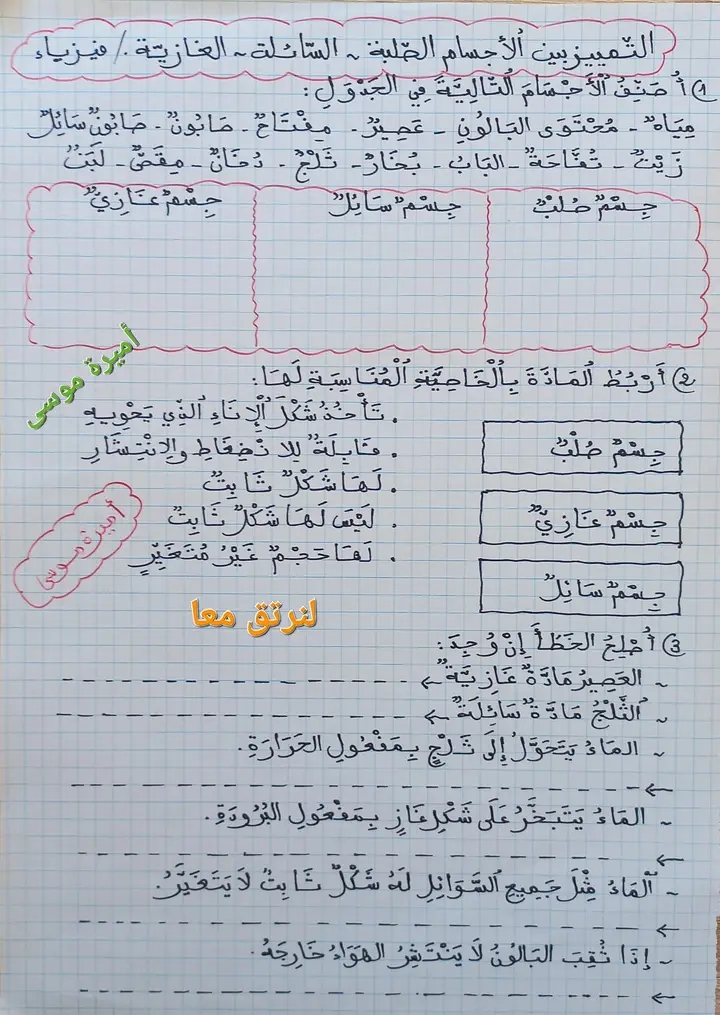 التَّمييز بين الأجسام الصّلبة - السّائلة - الغازيّة / فيزياء
1) أُصَنِّفُ الْأَجْسَامَ التَّالِيَةَ فِي الجَدْوَلِ :
مِيَاهٌ - مُحْتَوَى البَالُونِ - عَصِيرٌ - مِفْتَاحٌ - صَابُونٌ - صَابُونٌ سَائِلٌ
زَيْتٌ - تُفَّاحَةٌ - البَابُ - بُخَارٌ - ثَلْجٌ - دُخَانٌ - مِقَصٌّ - لَبَنٌ
جِسْمٌ صُلْبٌ
جِسْمٌ سَائِلٌ
جِسْمٌ غَازِيٌّ
أميرة موسى
2) أَرْبُطُ المَادَّةَ بِالْخَاصِيَّةِ الْمُنَاسِبَةِ لَهَا :
. تَأْخُذُ شَكْلَ الْإِنَاءِ الَّذِي يَحْوِيهِ
جِسْمٌ صُلْبٌ
. قَابِلَةٌ لِلاِنْضِغَاطِ وَالِانْتِشَارِ
. لَهَا شَكْلٌ ثَابِتٌ
جِسْمٌ غَازِيٌّ
. لَيْسَ لَهَا شَكْلٌ ثَابِتٌ
. لَهَا حَجْمٌ غَيْرُ مُتَغَيِّرٍ
جِسْمٌ سَائِلٌ
أميرة موسى
لنرتق معا
3) أُصْلِحُ الخَطَأَ إِنْ وُجِدَ :
- العَصِيرُ مَادَّةٌ غَازِيَّةٌ ←
- الثَّلْجُ مَادَّةٌ سَائِلَةٌ ←
- المَاءُ يَتَحَوَّلُ إِلَى ثَلْجٍ بِمَفْعُولِ الحَرَارَةِ .
←
- المَاءُ يَتَبَخَّرُ عَلَى شَكْلِ غَازٍ بِمَفْعُولِ البُرُودَةِ .
←
- الْمَاءُ مِثْلَ جَمِيعِ السَّوَائِلِ لَهُ شَكْلٌ ثَابِتٌ لَا يَتَغَيَّرُ .
←
- إِذَا ثُقِبَ البَالُونُ لَا يَنْتَشِرُ الهَوَاءُ خَارِجَهُ .
←